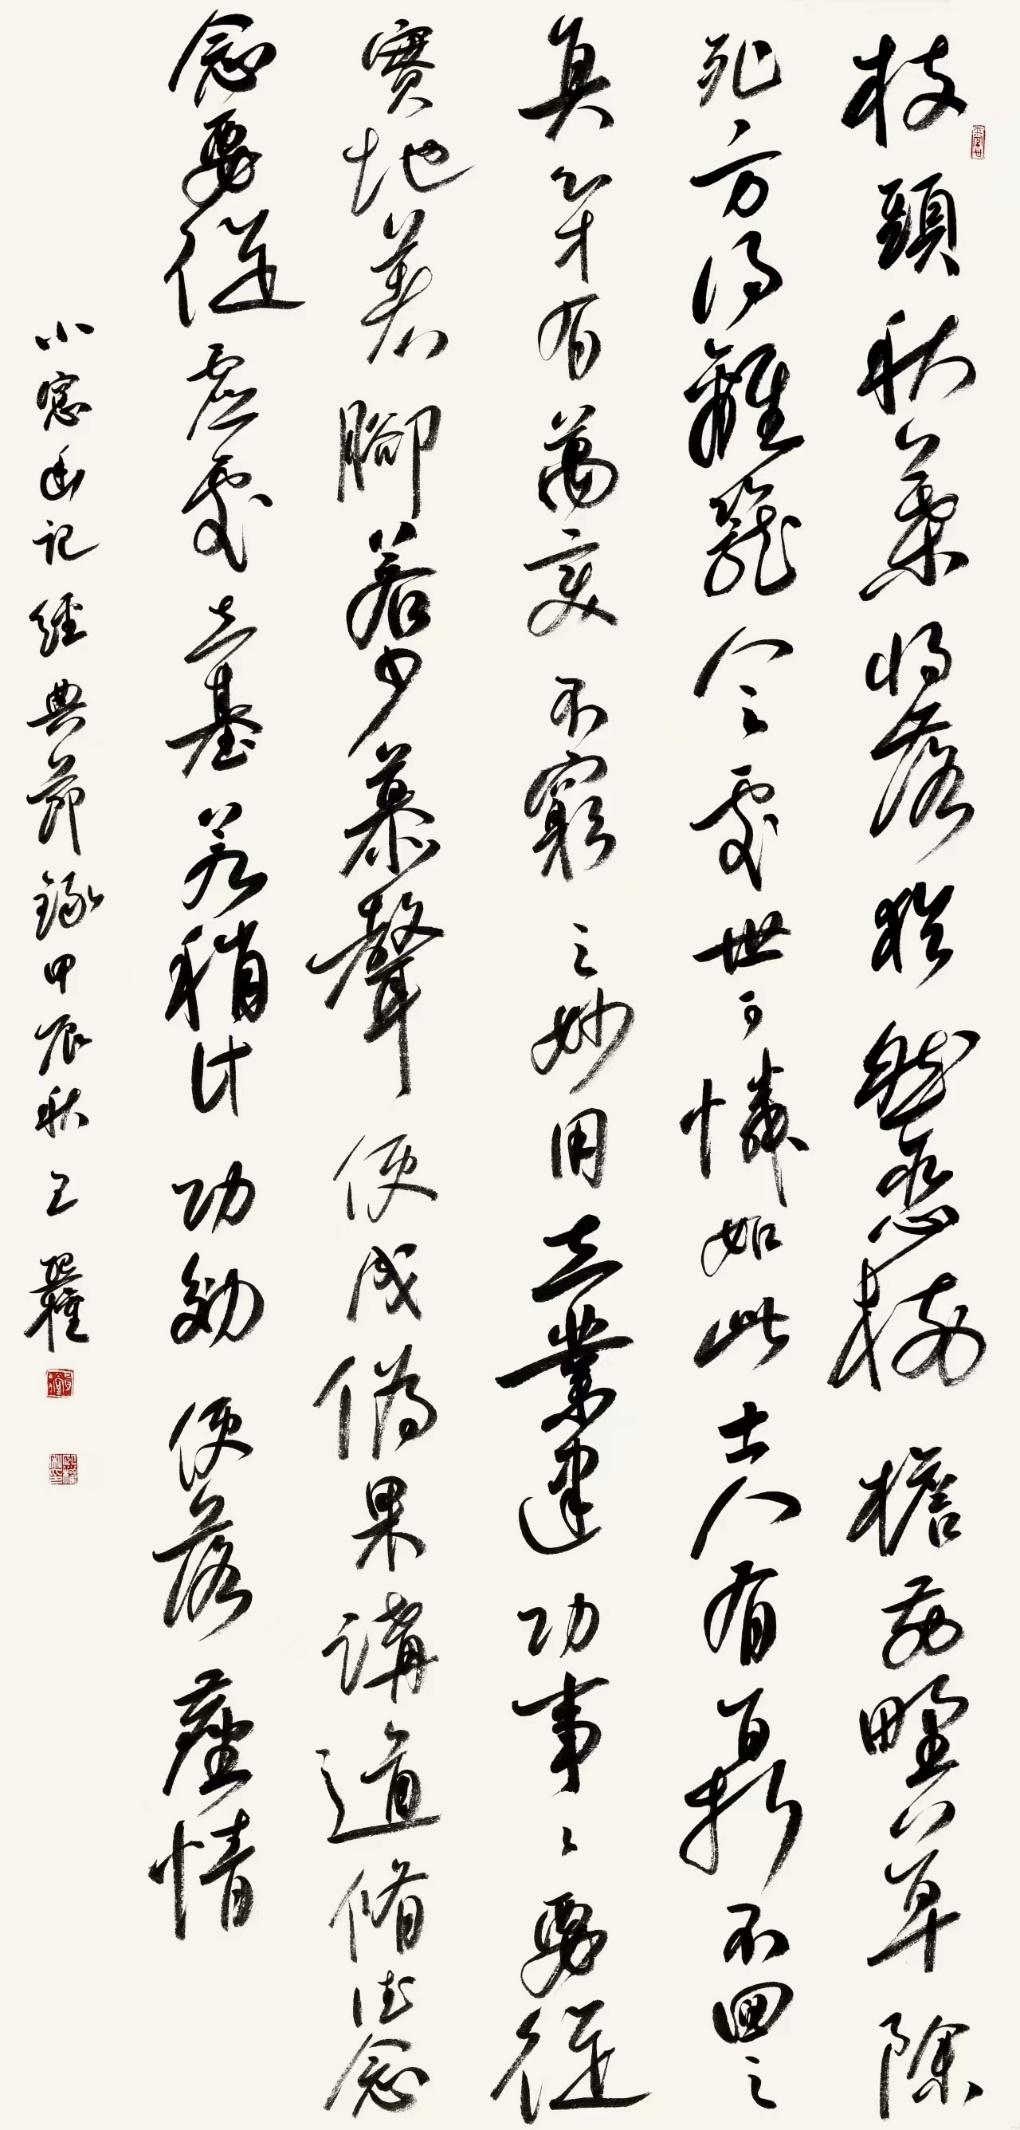 枝頭秋葉將落猶然戀樹檐前野草除
死方得離籠人之處世可憐如此士人有百折不回之
真心才有萬變不窮之妙用立業建功事々要從
實地着腳若少慕聲便成偽果講道脩德念
念要從虛處立基若稍計功効便落塵情
小窓幽記經典節錄甲辰秋王